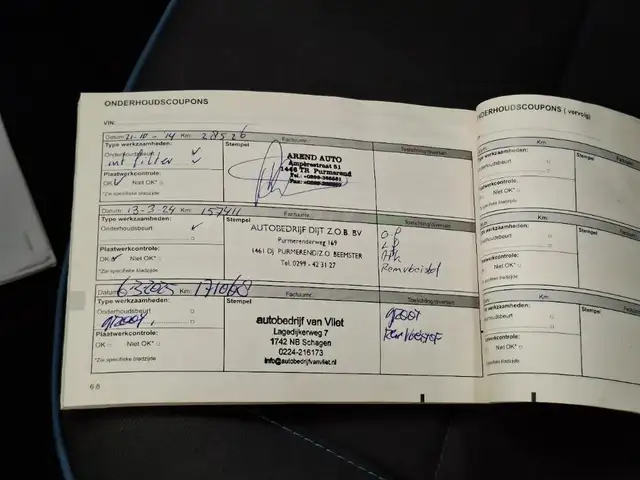 ONDERHOUDSCOUPONS
VIN:
Datum: 21-10-14 Km: 28526 Factuurnr.
Type werkzaamheden:
Onderhoudsbeurt
int filter
Plaatwerkcontrole:
OK Niet OK*
*Zie specifieke bladzijde
Stempel
AREND AUTO
Ampèrestraat 51
1446 TR Purmerend
Toelichting/diversen
Datum: 13-3-24 Km: 157411 Factuurnr.
Type werkzaamheden:
Onderhoudsbeurt
Plaatwerkcontrole:
OK Niet OK*
*Zie specifieke bladzijde
Stempel
AUTOBEDRIJF DIJT Z.O.B. BV
Purmerenderweg 169
1461 DJ PURMEREND/Z.O. BEEMSTER
Tel. 0299 - 42 31 27
Toelichting/diversen
Datum: 6-3-2025 Km: Factuurnr.
Type werkzaamheden:
Onderhoudsbeurt
groot
Plaatwerkcontrole:
OK Niet OK*
*Zie specifieke bladzijde
Stempel
autobedrijf van Vliet
Lagedijkerweg 7
1742 NB Schagen
0224-216173
info@autobedrijfvanvliet.nl
Toelichting/diversen
groot
Remvloeistof
6.6
ONDERHOUDSCOUPONS ( vervolg)
Km:
werkzaamheden:
Niet OK*
Km:
werkzaamheden:
Niet OK*
Km:
werkzaamheden:
Niet OK*